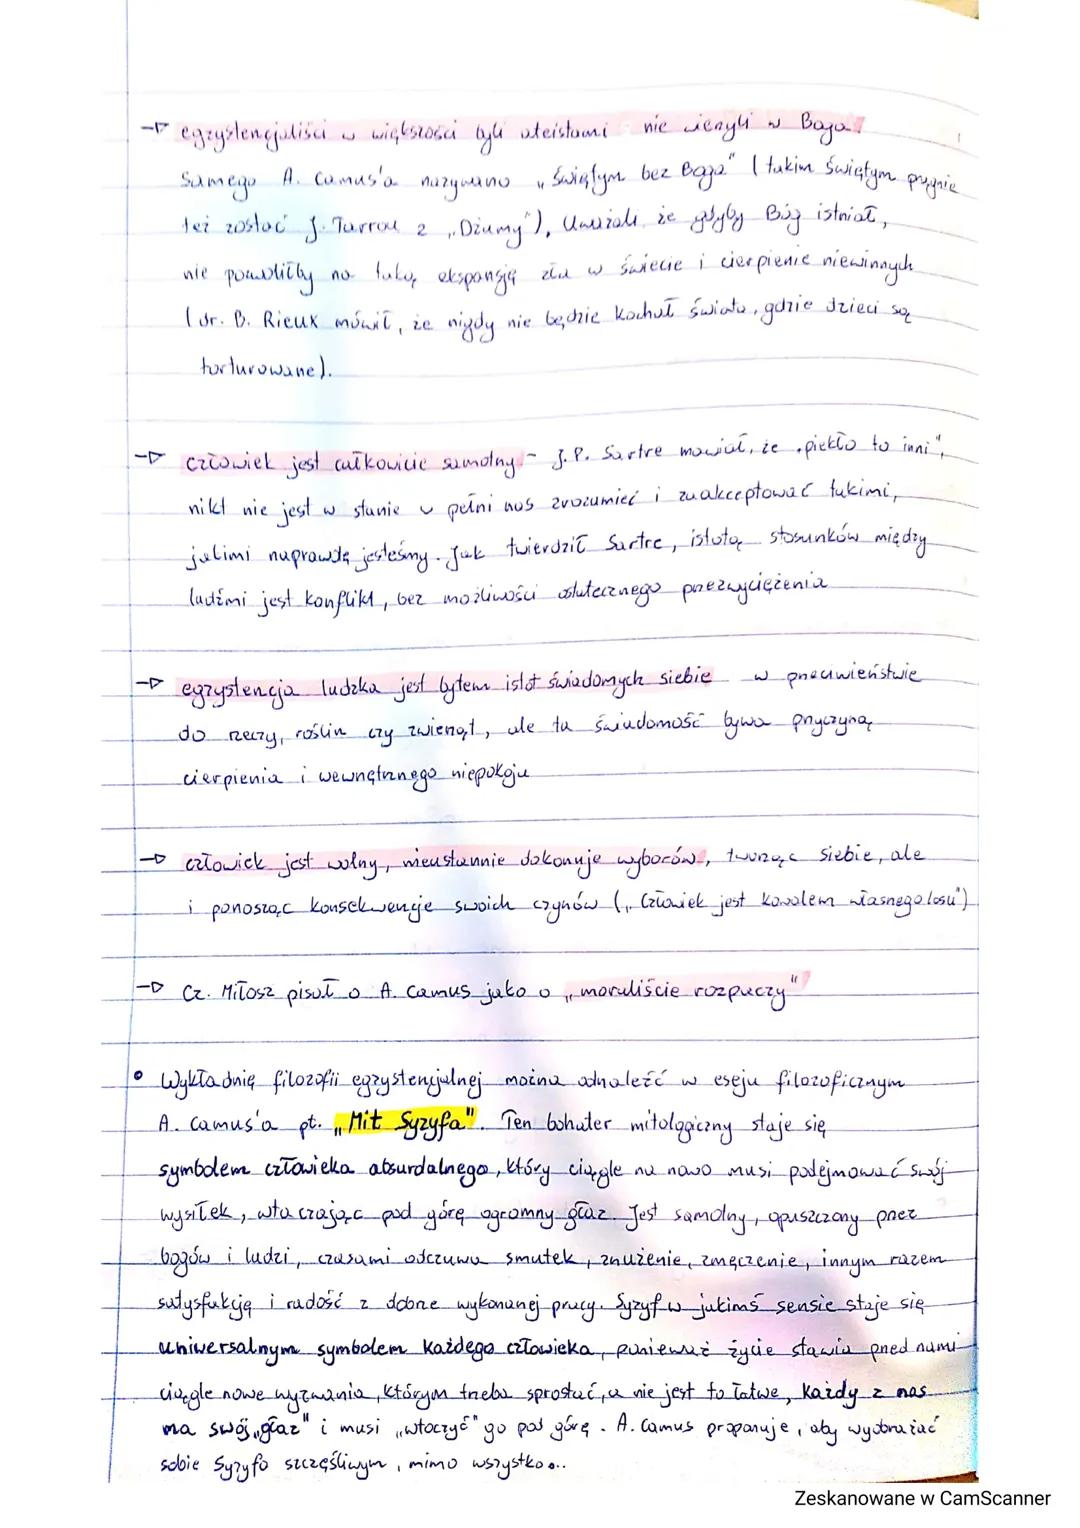 → egzystencjaliści w większości byli ateistami nie wierzyli w Boga.
Samego A. Camus'a nazywano „Świętym bez Boga" (takim Świętym pragnie
też zostać J. Tarrou z „Dżumy"). Uważali, że gdyby Bóg istniał,
nie pozwoliłby na taką ekspansję zła w świecie i cierpienie niewinnych
(dr. B. Rieux mówił, że nigdy nie będzie kochał świata, gdzie dzieci są
torturowane).
→ człowiek jest całkowicie samotny - J.P. Sartre mówiał, że „piekło to inni",
nikt nie jest w stanie w pełni nas zrozumieć i zaakceptować takimi,
jakimi naprawdę jesteśmy. Jak twierdził Sartre, istotą stosunków między
ludźmi jest konflikt, bez możliwości ostatecznego przezwyciężenia
→ egzystencja ludzka jest bytem istot świadomych siebie w przeciwieństwie
do rzeczy, roślin czy zwierząt, ale ta świadomość bywa przyczyną
cierpienia i wewnętrznego niepokoju
→ człowiek jest wolny, nieustannie dokonuje wyborów, tworząc siebie, ale
i ponosząc konsekwencje swoich czynów („Człowiek jest kowalem własnego losu")
→ Cz. Miłosz pisał o A. Camus jako o „moraliście rozpaczy"
• Wykładnię filozofii egzystencjalnej można odnaleźć w eseju filozoficznym
A. Camus'a pt. „Mit Syzyfa". Ten bohater mitologiczny staje się
symbolem człowieka absurdalnego, który ciągle na nowo musi podejmować swój
wysiłek, wtaczając pod górę ogromny głaz. Jest samotny, opuszczony przez
bogów i ludzi, czasami odczuwa smutek, znużenie, zmęczenie, innym razem
satysfakcję i radość z dobrze wykonanej pracy. Syzyf w jakimś sensie staje się
uniwersalnym symbolem każdego człowieka, ponieważ życie stawia przed nami
ciągle nowe wyzwania, którym trzeba sprostać, a nie jest to łatwe, każdy z nas
ma swój „głaz" i musi „wtoczyć" go pod górę. A. Camus proponuje, aby wyobrażać
sobie Syzyfa szczęśliwym, mimo wszystko...
Zeskanowane w CamScanner